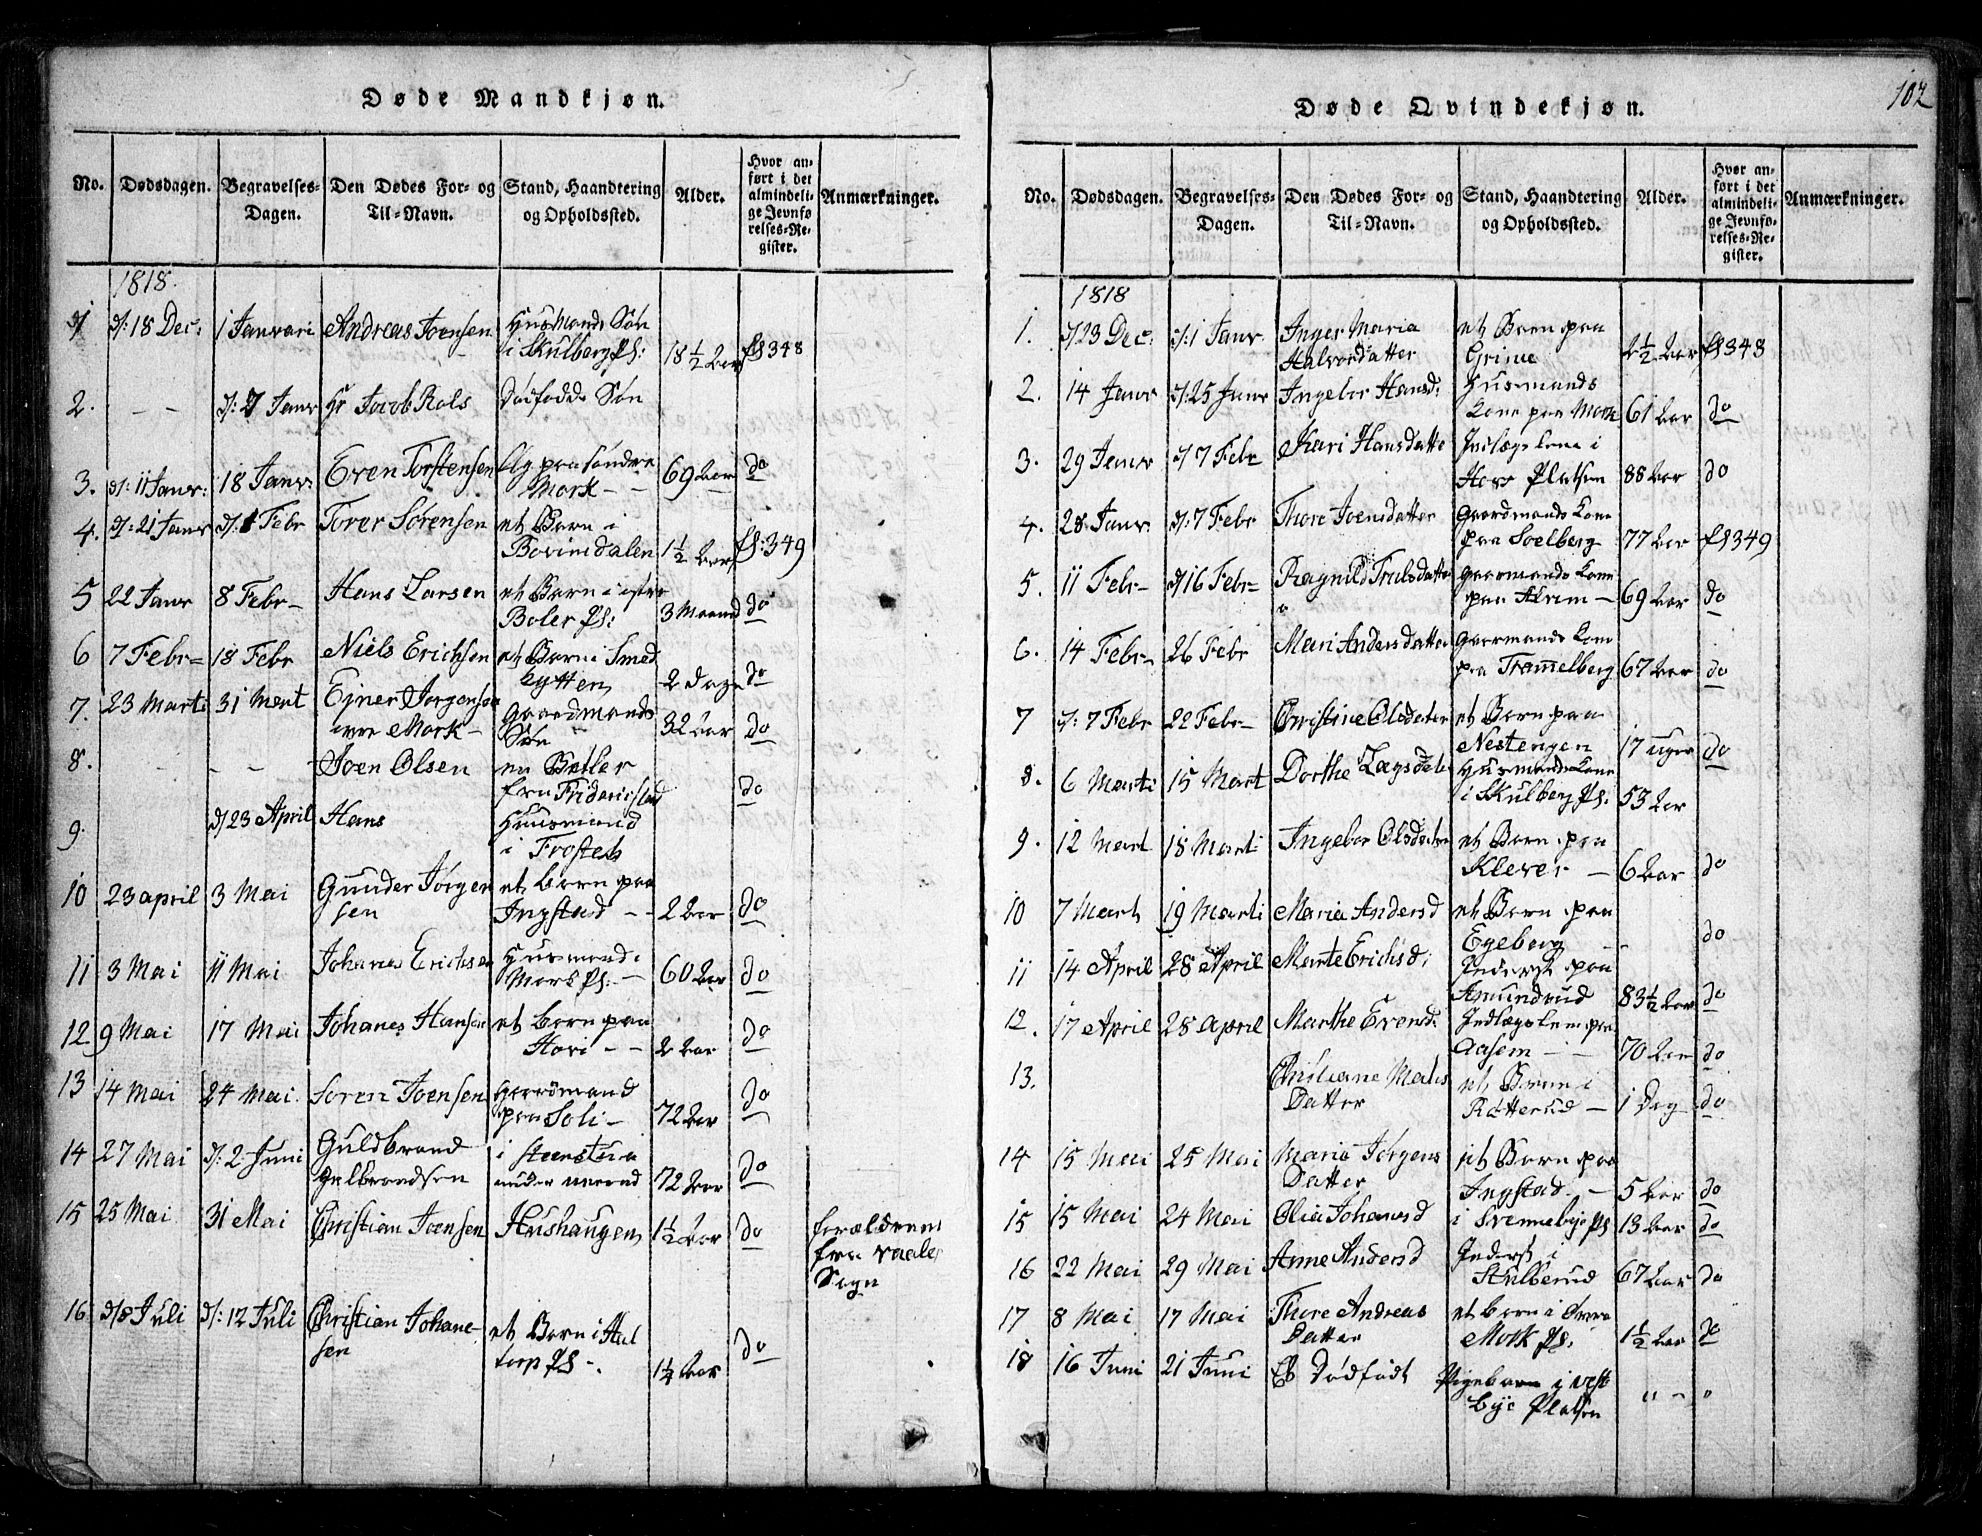 102
Døde Mandkjøn.
No. Dødsdagen. Begravelses-Dagen. Den Dødes For- og Til-Navn. Stand, Haandtering og Opholdssted. Alder. Hvor anført i det almindelige Jevnførelses-Register. Anmærkninger.
1818.
1 d/: 18 Dec: 1 Januari Andreas Joensen Husmands Søn
i Skulberg Pl: 18 1/2 Aar fl 348
2. - - d/: 7 Janr Hr Jacob Rols Dødfødde Søn
3. d/: 11 Janr: 18 Janr: Even Torstensen Elg paa søndre
Mork - - 69 Aar do
4. d/: 21 Janr d/: 1 Febr Torer Sørensen et Barn i
Bovimdalen 1 1/2 Aar fl: 349
5 22 Janr 8 Febr - Hans Larsen et Barn i
Boler Pl: 3 Maaned do
6 7 Febr = 18 Febr Niels Erichsen et Barn i Smed
hytten 2 Dage do
7. 23 Marti 31 Mart Ejner Jørgensen Gaardmands
Mork - Søn 32 Aar do
8. - - - Joen Olsen en Betler
fra Friderichstad do
9. d/23 April Hans Huusmand
i Frosteds
10 23 april 3 Mai Gunder Jørgen et barn paa
sen Ingstad - - 2 Aar do
11 3 Mai 11 Mai Johanes Erichsen Husmand i
Mork Pl: - 60 Aar do
12 9 Mai 17 Mai Johanes Hansen et barn paa
Hovi - - 2 Aar do
13 14 Mai 24 Mai. Soren Joensen Gaardmand
paa Soli - 72 Aar do
14 27 Mai d/: 2 Juni Guldbrand i
Gulbrandsen under 72 Aar do
15 25 Mai 31 Mai Christian Joensen Hushaugen 1 1/2 Aar do forældrene
fra Vaaler
Sogn
16 d/8 Juli d/: 12 Juli Christian Johane- et Barn i Hal
sen torp Pl - 1 1/4 Aar do
Døde Qvindekjøn.
No. Dødsdagen. Begravelses-Dagen. Den Dødes For- og Til-Navn. Stand, Haandtering og Opholdssted. Alder. Hvor anført i det almindelige Jevnførelses-Register. Anmærkninger.
1818
1. d/23 Dec: d/: 1 Janr Inger Maria et Barn paa
Halvorsdatter Grime 2 1/2 Aar fl 343
2. 14 Janr d/: 25 Janr Ingebor Hansd: Husmands
Kone paa Mork 61 Aar do
3. 29 Janr d/ 7 Febr Kari Hansdatte Indlægskone i
Platsen 88 Aar do
4. 28 Janr d/: 7 Febr Thore Joensdatter Gaardmands Kone
paa Soelberg 77 Aar fl 349
5. 11 Febr - d/16 Febr - Ragnild Trulsdatter Gaarmands Kone
paa - 69 Aar do
6. 14 Febr - 26 Febr Mari Andersdatter Gaarmands Kone
paa Trømelberg 67 Aar do
7 d/: 7 Febr 22 Febr - Christine Olsdater et Barn paa
Nestengen 17 uger do
8. 6 Marti 15 Mart Dorthe Husmands Kone
i Skulberg Pl: 53 Aar
9. 12 Mart 18 Marti Ingebor Olsdater et Barn paa
Klever - 6 Aar do
10 7 Mart 19 Marti Maria Andersd et Barn paa
Egeberg - - do
11 14 April 28 April Marte Erichsd: Inderst paa
Amundrud 83 1/2 Aar do
12. 17 April 28 april Marthe Evensd: Indlægskone paa
Aasem - - 70 Aar do
13. Christiane Mats et Barn i
Datter Røtterud - 1 Dag do
14 15 Mai 25 Mai Maria Jørgens et Barn paa
Datter Ingstad - 5 Aar do
15 15 Mai 24 Mai Olia Johansd i Svennebye Pl 13 Aar do
16 22 Mai 29 Mai Anne Andersd Inderst i
Skulberud 67 Aar do
17 8 Mai 17 Mai Thore Andreas et barn i Øvre
Datter Mork Pl: 1 1/2 Aar do
18 16 Juni 21 Juni Et Dødfødt Pigebarn i vest
bye Platsen " - "